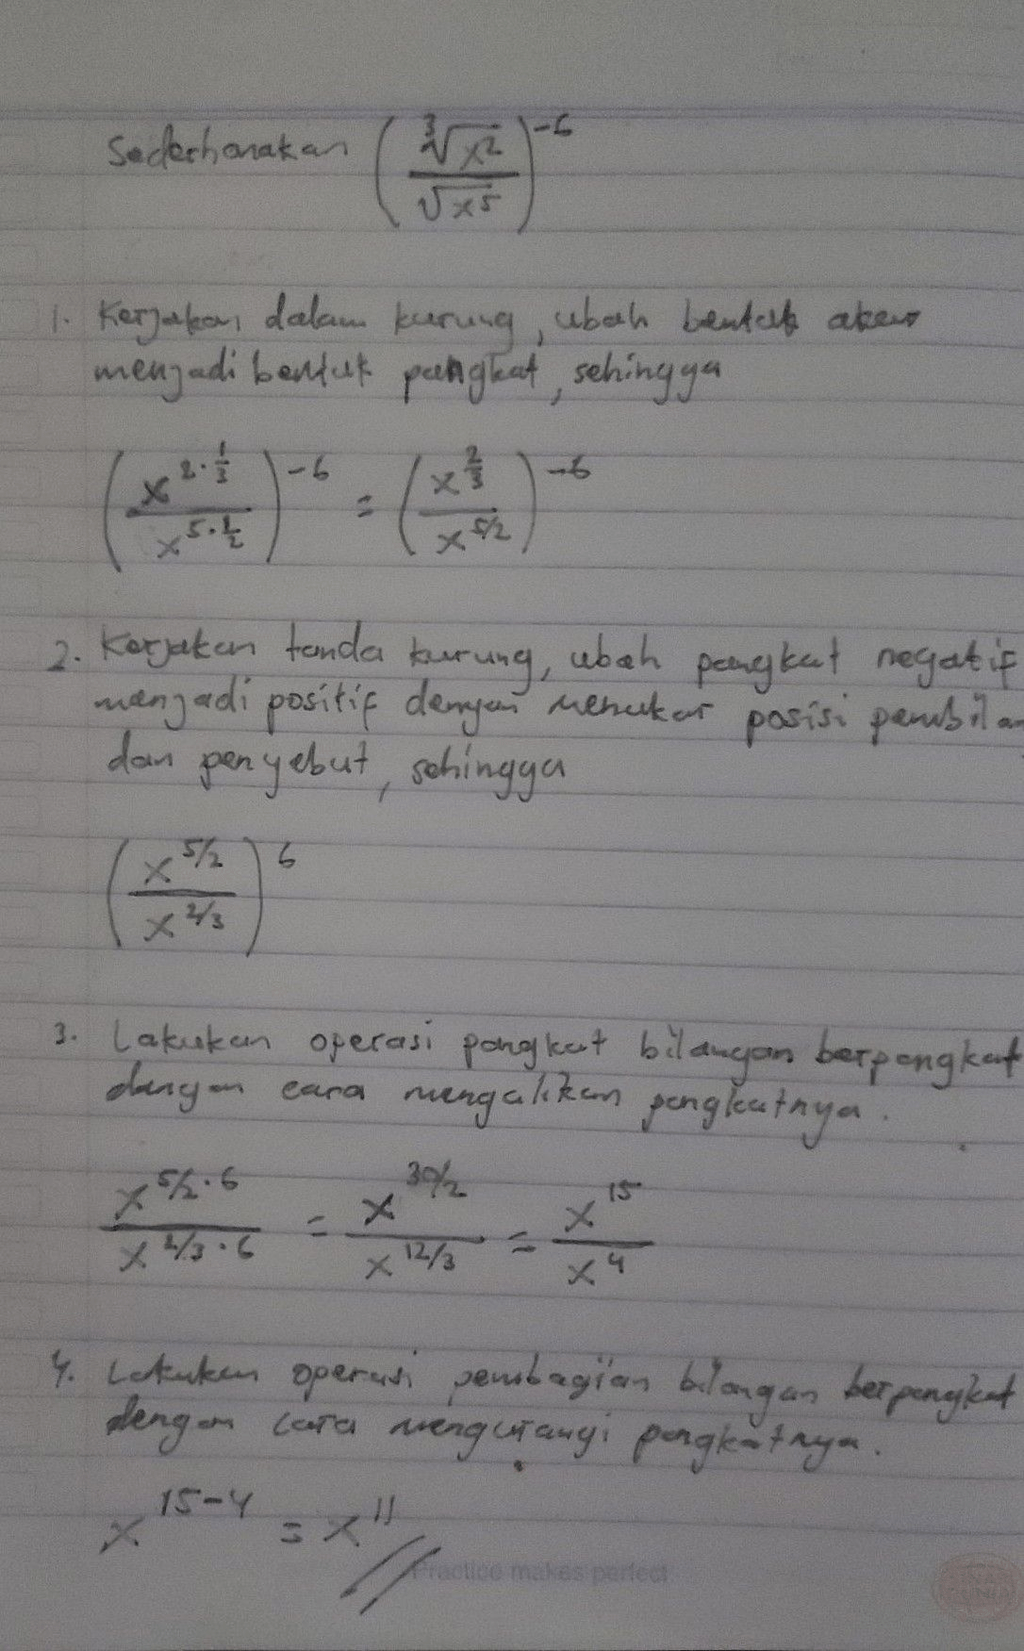 Sederhanakan (∛x² / √x⁵)⁻⁶
1. Kerjakan dalam kurung, ubah bentuk akar
menjadi bentuk pangkat, sehingga
(x^{2·1/3} / x^{5·1/2})⁻⁶ = (x^{2/3} / x^{5/2})⁻⁶
2. Kerjakan tanda kurung, ubah pangkat negatif
menjadi positif dengan menukar posisi pembilan
dan penyebut, sehingga
(x^{5/2} / x^{2/3})⁶
3. Lakukan operasi pangkat bilangan berpangkat
dengan cara mengalikan pangkatnya.
x^{5/2·6} / x^{2/3·6} = x^{30/2} / x^{12/3} = x¹⁵ / x⁴
4. Lakukan operasi pembagian bilangan berpangkat
dengan cara mengurangi pangkatnya.
x^{15-4} = x¹¹ //
Practice makes perfect